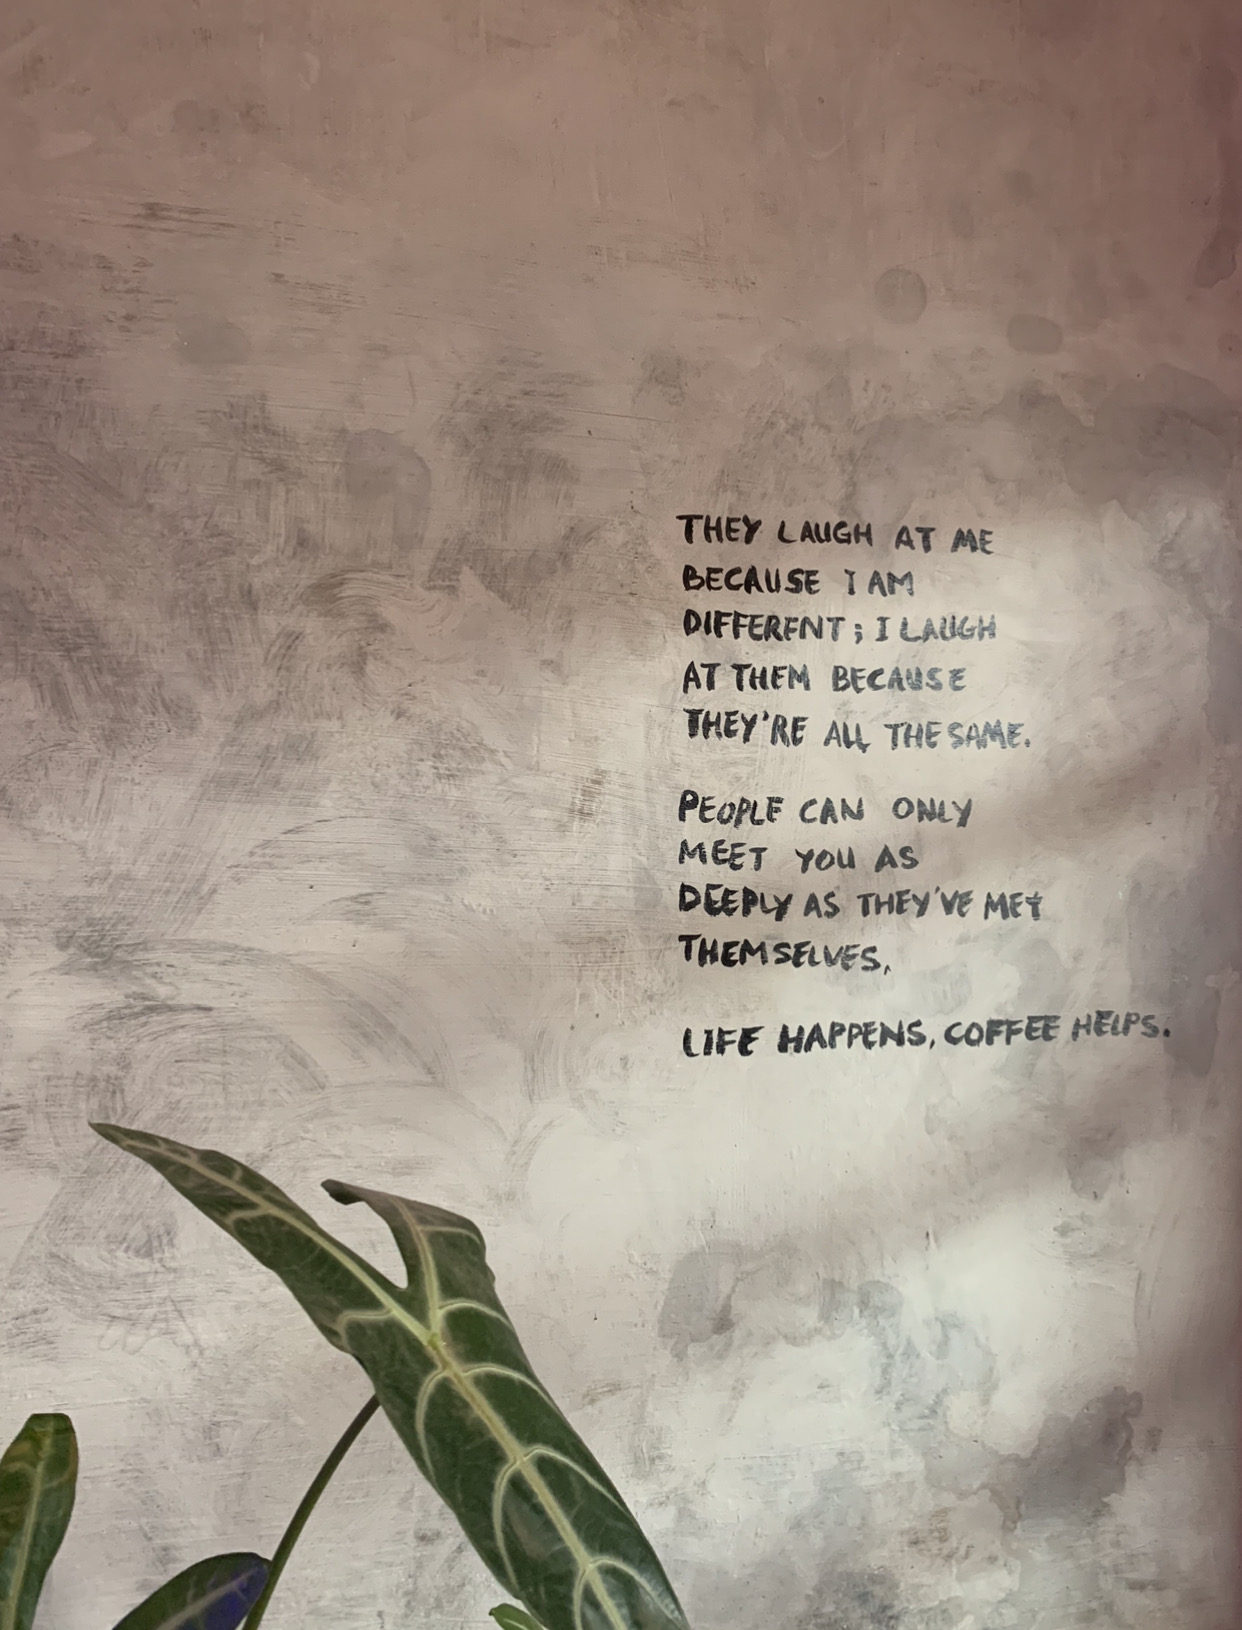 THEY LAUGH AT ME
BECAUSE I AM
DIFFERENT; I LAUGH
AT THEM BECAUSE
THEY'RE ALL THE SAME.
PEOPLE CAN ONLY
MEET YOU AS
DEEPLY AS THEY'VE MET
THEMSELVES.
LIFE HAPPENS, COFFEE HELPS.